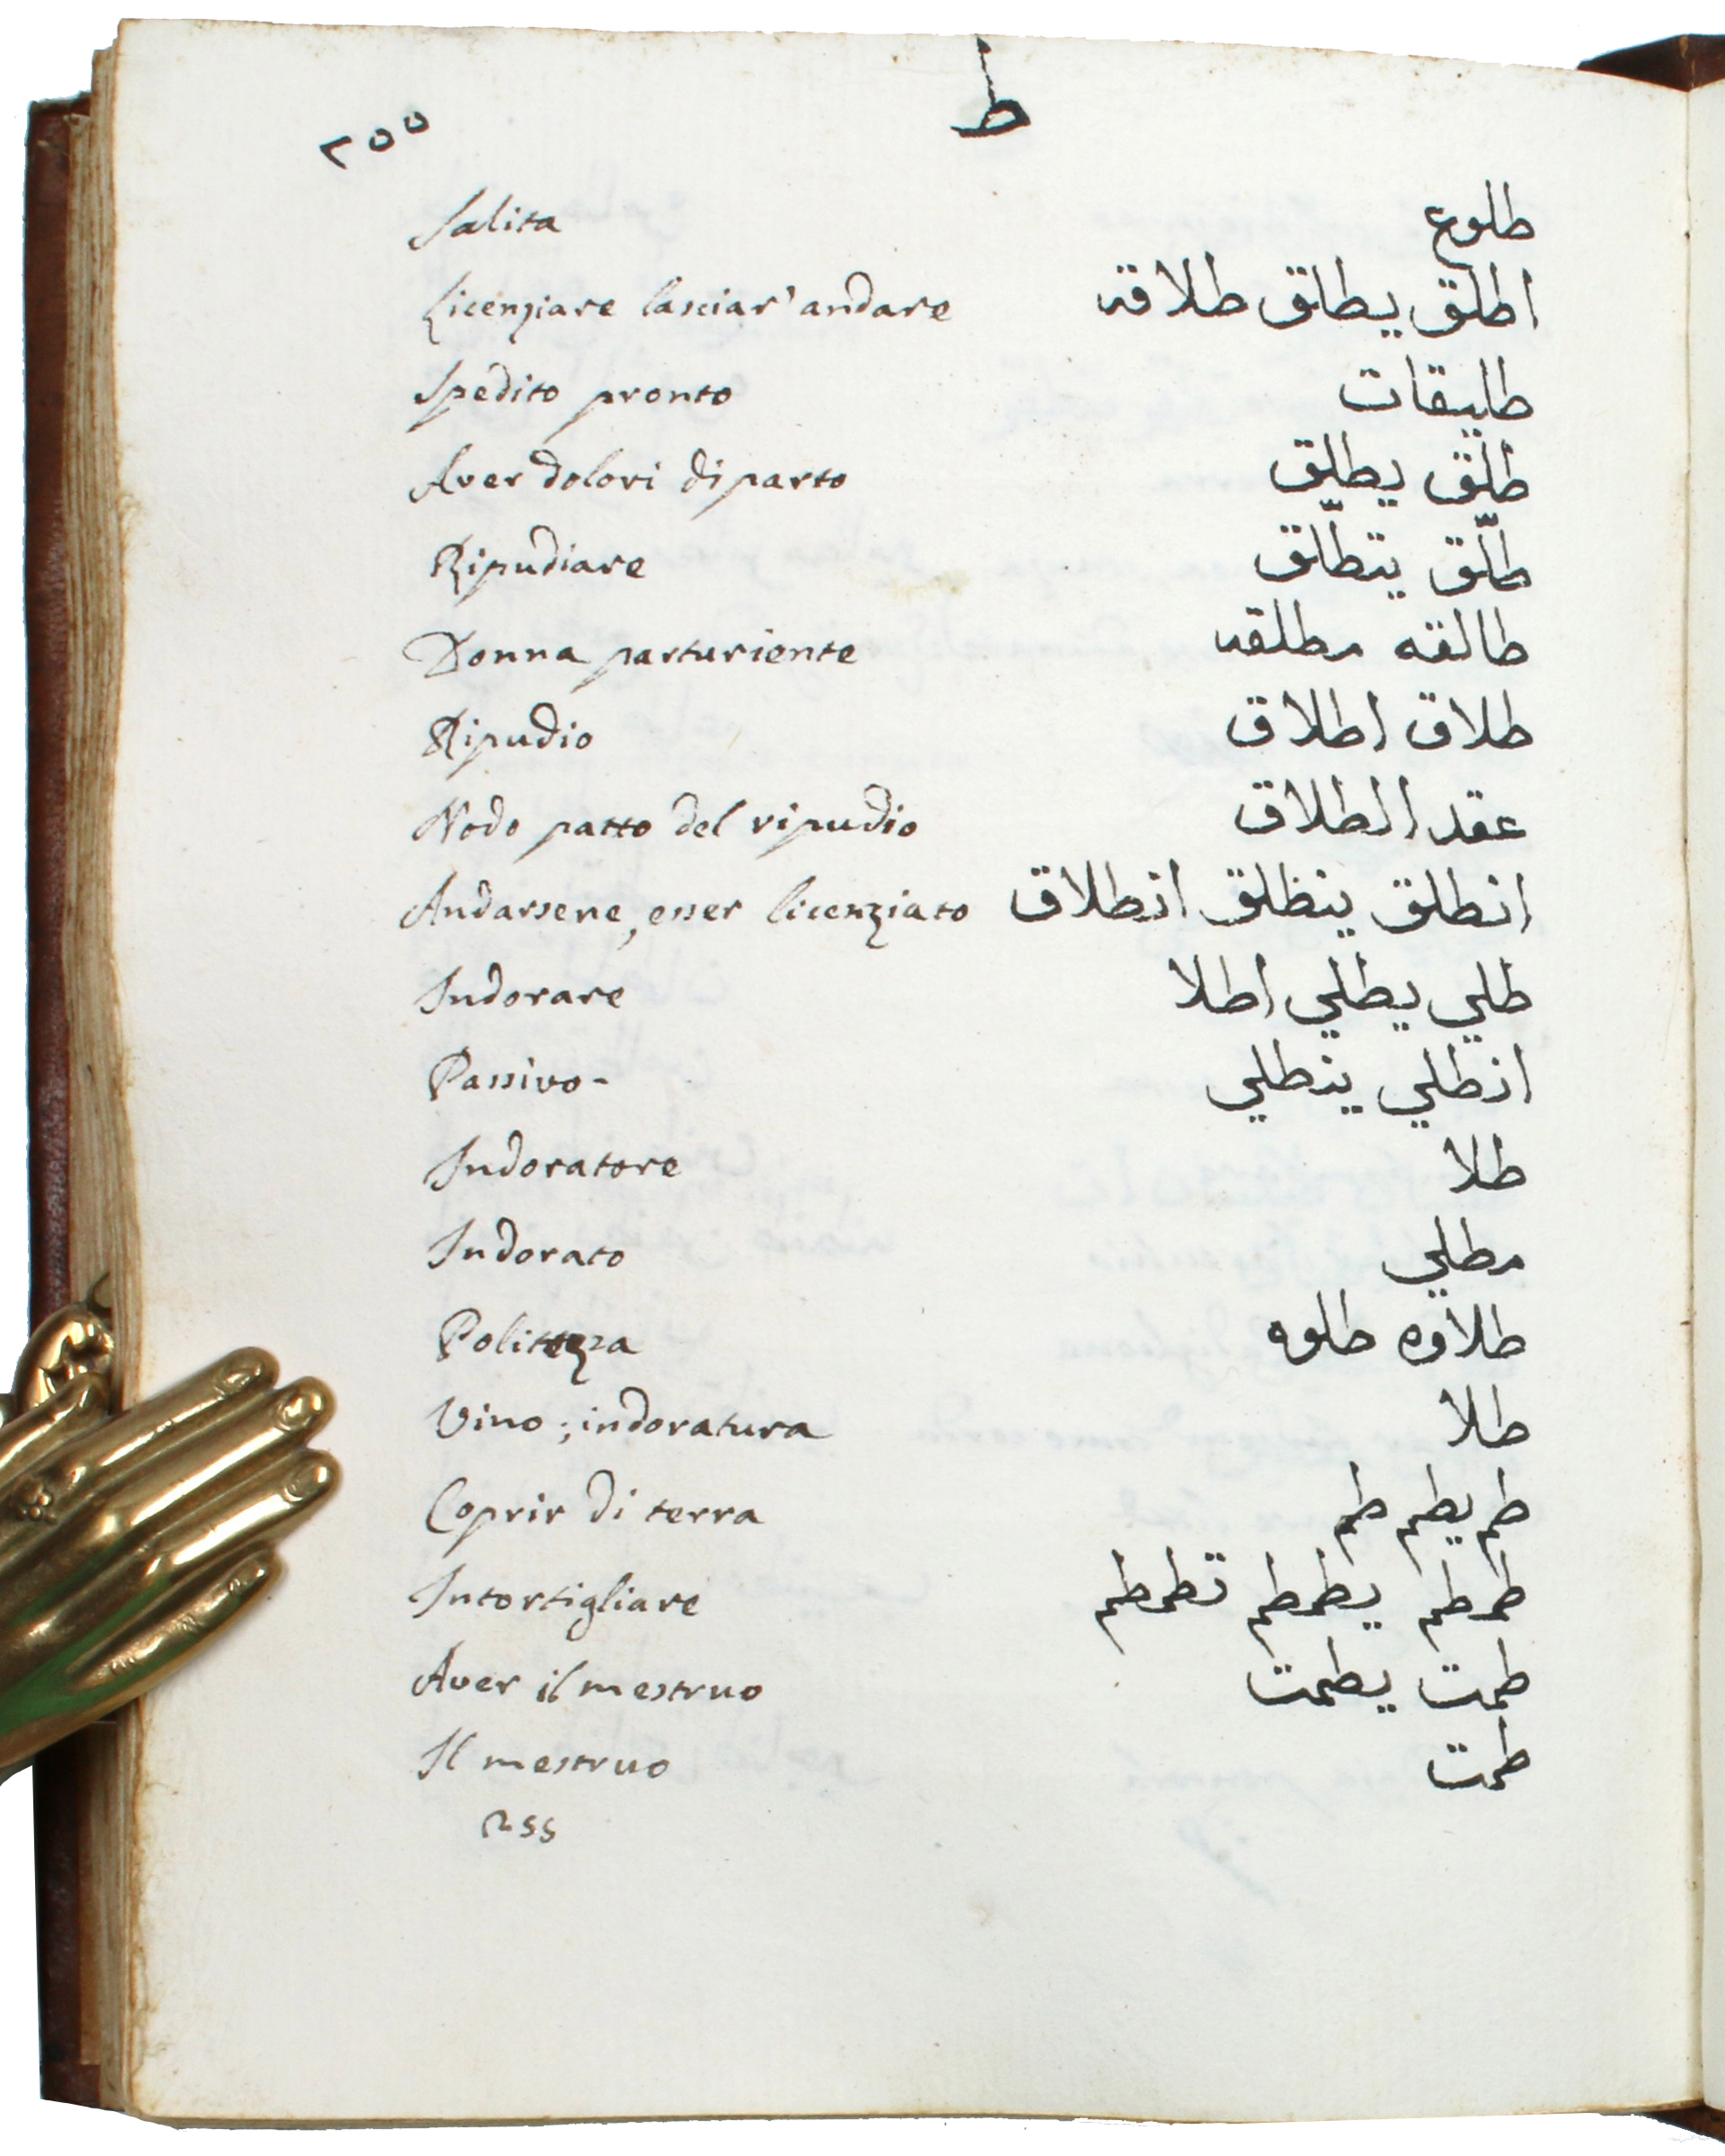 ٢٥٥
ط
Salita طلوع
Licenziare lasciar' andare اطلق يطلق طلاقه
Spedito pronto طليقات
Aver dolori di parto طلق يطلق
Ripudiare طلّق يتطلّق
Donna parturiente طالقه مطلقه
Ripudio طلاق اطلاق
Nodo patto del ripudio عقد الطلاق
Andarsene, esser licenziato انطلق ينطلق انطلاق
Indorare طلي يطلي اطلا
Passivo- انطلي ينطلي
Indoratore طلا
Indorato مطلي
Politezza طلاوه طلوه
Vino; indoratura طلا
Coprir di terra طم يطم طم
Intortigliare طمطم يطمطم تطمطم
Aver il mestruo طمت يطمت
Il mestruo طمت
255